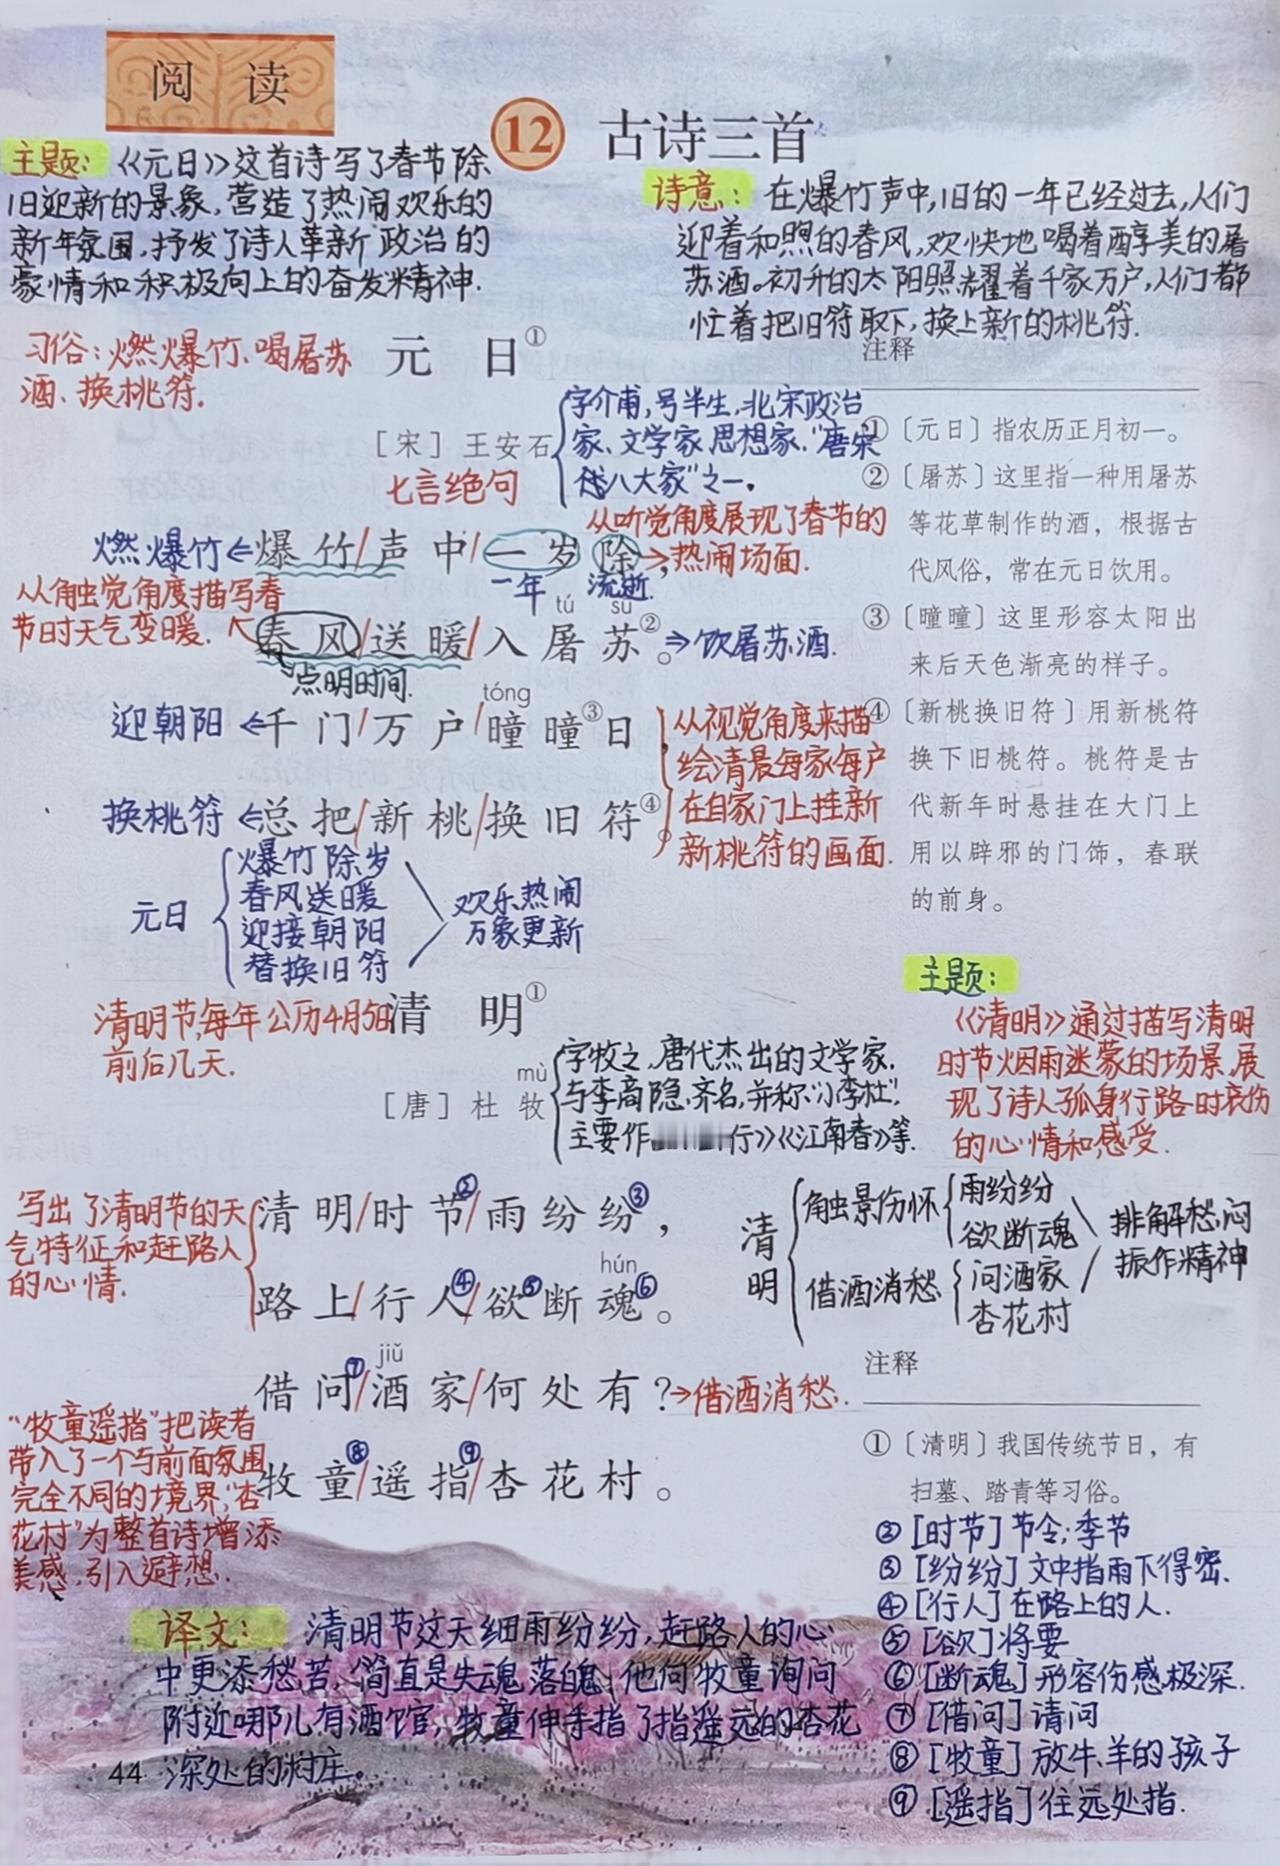 阅 读
12 古诗三首
主题：《元日》这首诗写了春节除
旧迎新的景象，营造了热闹欢乐的
新年氛围，抒发了诗人革新政治的
豪情和积极向上的奋发精神.
诗意：在爆竹声中，旧的一年已经过去，人们
迎着和煦的春风，欢快地喝着醇美的屠
苏酒。初升的太阳照耀着千家万户，人们都
忙着把旧符取下，换上新的桃符.
习俗：燃爆竹、喝屠苏
酒、换桃符.
元 日①
[宋] 王安石
字介甫，号半生，北宋政治
家、文学家、思想家.“唐宋
八大家”之一.
七言绝句
燃爆竹⇐爆竹/声中/一岁除，
从听觉角度展现了春节的
→热闹场面.
一年
流逝.
从触觉角度描写春
节时天气变暖.
tú sū
春风/送暖/入屠苏②。⇒饮屠苏酒.
点明时间.
tóng
迎朝阳⇐千门/万户/曈曈③日，
换桃符⇐总把/新桃/换旧符④。
从视觉角度来描
绘清晨每家每户
在自家门上挂新
新桃符的画面.
元日
爆竹除岁
春风送暖
迎接朝阳
替换旧符
欢乐热闹
万象更新
注释
①〔元日〕指农历正月初一。
②〔屠苏〕这里指一种用屠苏
等花草制作的酒，根据古
代风俗，常在元日饮用。
③〔曈曈〕这里形容太阳出
来后天色渐亮的样子。
④〔新桃换旧符〕用新桃符
换下旧桃符。桃符是古
代新年时悬挂在大门上
用以辟邪的门饰，春联
的前身。
清明节，每年公历4月5日
前后几天.
清 明①
mù
[唐] 杜 牧
字牧之，唐代杰出的文学家.
与李商隐齐名，并称“小李杜”.
主要作行》《江南春》等.
主题：
《清明》通过描写清明
时节烟雨迷蒙的场景，展
现了诗人孤身行路时哀伤
的心情和感受.
写出了清明节的天
气特征和赶路人
的心情.
清明/时节②/雨纷纷③，
hún
路上/行人④/欲⑤断魂⑥。
jiǔ
借问⑦/酒家/何处有？→借酒消愁.
牧童⑧/遥指⑨/杏花村。
清明
触景伤怀
雨纷纷
欲断魂
借酒消愁
问酒家
杏花村
排解愁闷
振作精神
“牧童遥指”把读者
带入了一个与前面氛围
完全不同的境界，“杏
花村”为整首诗增添
美感，引入遐想.
注释
①〔清明〕我国传统节日，有
扫墓、踏青等习俗。
②[时节]节令；季节
③[纷纷]文中指雨下得密.
④[行人]在路上的人.
⑤[欲]将要
⑥[断魂]形容伤感极深.
⑦[借问]请问
⑧[牧童]放牛、羊的孩子
⑨[遥指]往远处指.
译文：清明节这天细雨纷纷，赶路人的心
中更添愁苦，简直是失魂落魄，他向牧童询问
附近哪儿有酒馆，牧童伸手指了指遥远的杏花
深处的村庄。
44